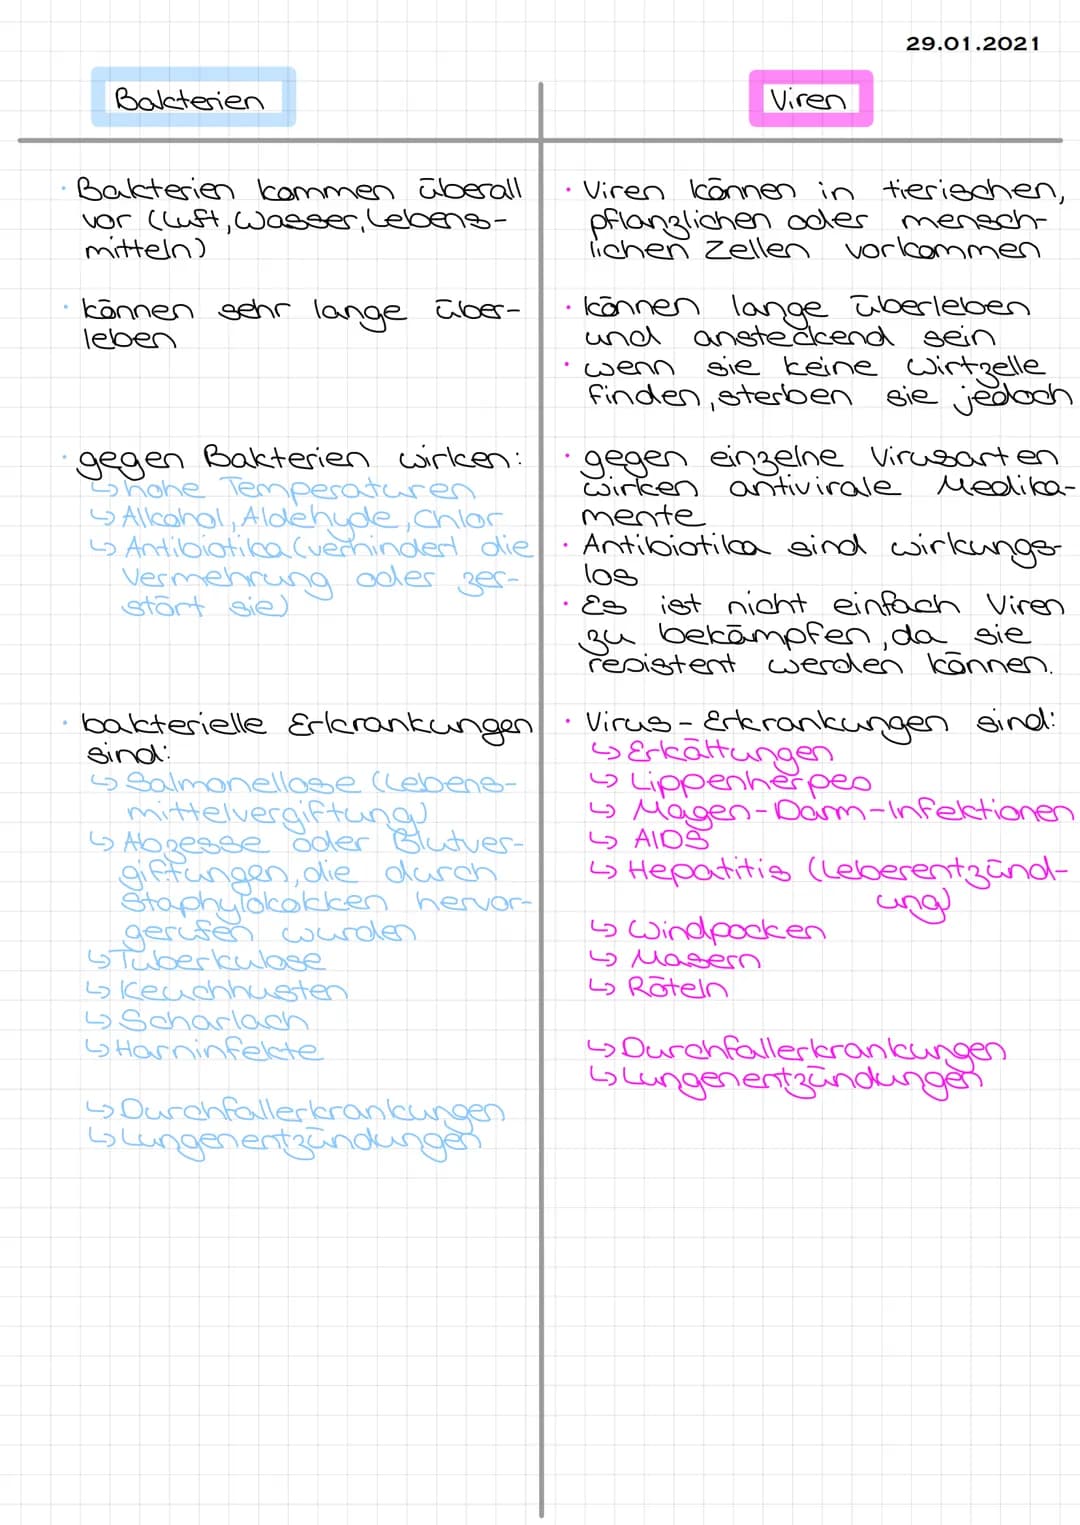 29.01.2021
Bakterien
· Bakterien kommen überall
vor (Luft, Wasser, Lebens-
mitteln)
· können sehr lange über-
leben
· gegen Bakterien wirken:
↳ hohe Temperaturen
↳ Alkohol, Aldehyde, Chlor
↳ Antibiotika (verhindert die
Vermehrung oder zer-
stört sie)
· bakterielle Erkrankungen
sind:
↳ Salmonellose (Lebens-
mittelvergiftung)
↳ Abzesse oder Blutver-
giftungen, die durch
Staphylokokken hervor-
gerufen wurden
↳ Tuberkulose
↳ Keuchhusten
↳ Scharlach
↳ Harninfekte
↳ Durchfallerkrankungen
↳ Lungenentzündungen
Viren
· Viren können in tierischen,
pflanzlichen oder mensch-
lichen Zellen vorkommen
· können lange überleben
und ansteckend sein
· wenn sie keine Wirtzelle
finden, sterben sie jedoch
· gegen einzelne Virusarten
wirken antivirale Medika-
mente
· Antibiotika sind wirkungs-
los
· Es ist nicht einfach Viren
zu bekämpfen, da sie
resistent werden können.
· Virus - Erkrankungen sind:
↳ Erkältungen
↳ Lippenherpes
↳ Magen-Darm-Infektionen
↳ AIDS
↳ Hepatitis (Leberentzünd-
ung)
↳ Windpocken
↳ Masern
↳ Röteln
↳ Durchfallerkrankungen
↳ Lungenentzündungen